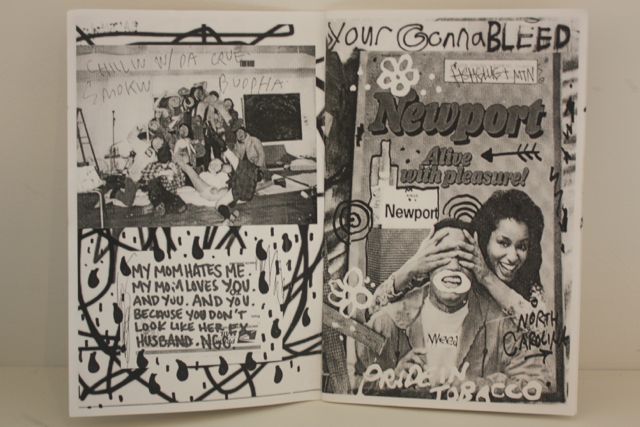 CHILLIN W/ DA CRUE
SMOKIN BUDDHA
MY MOM HATES ME.
MY MOM LOVES YOU.
AND YOU. AND YOU.
BECAUSE YOU DON'T
LOOK LIKE HER EX
HUSBAND.
YOUR GonnaBLEED
MTN
Newport
Alive
with pleasure!
Newport
Weed
NORTH
CAROLINA
TOBACCO